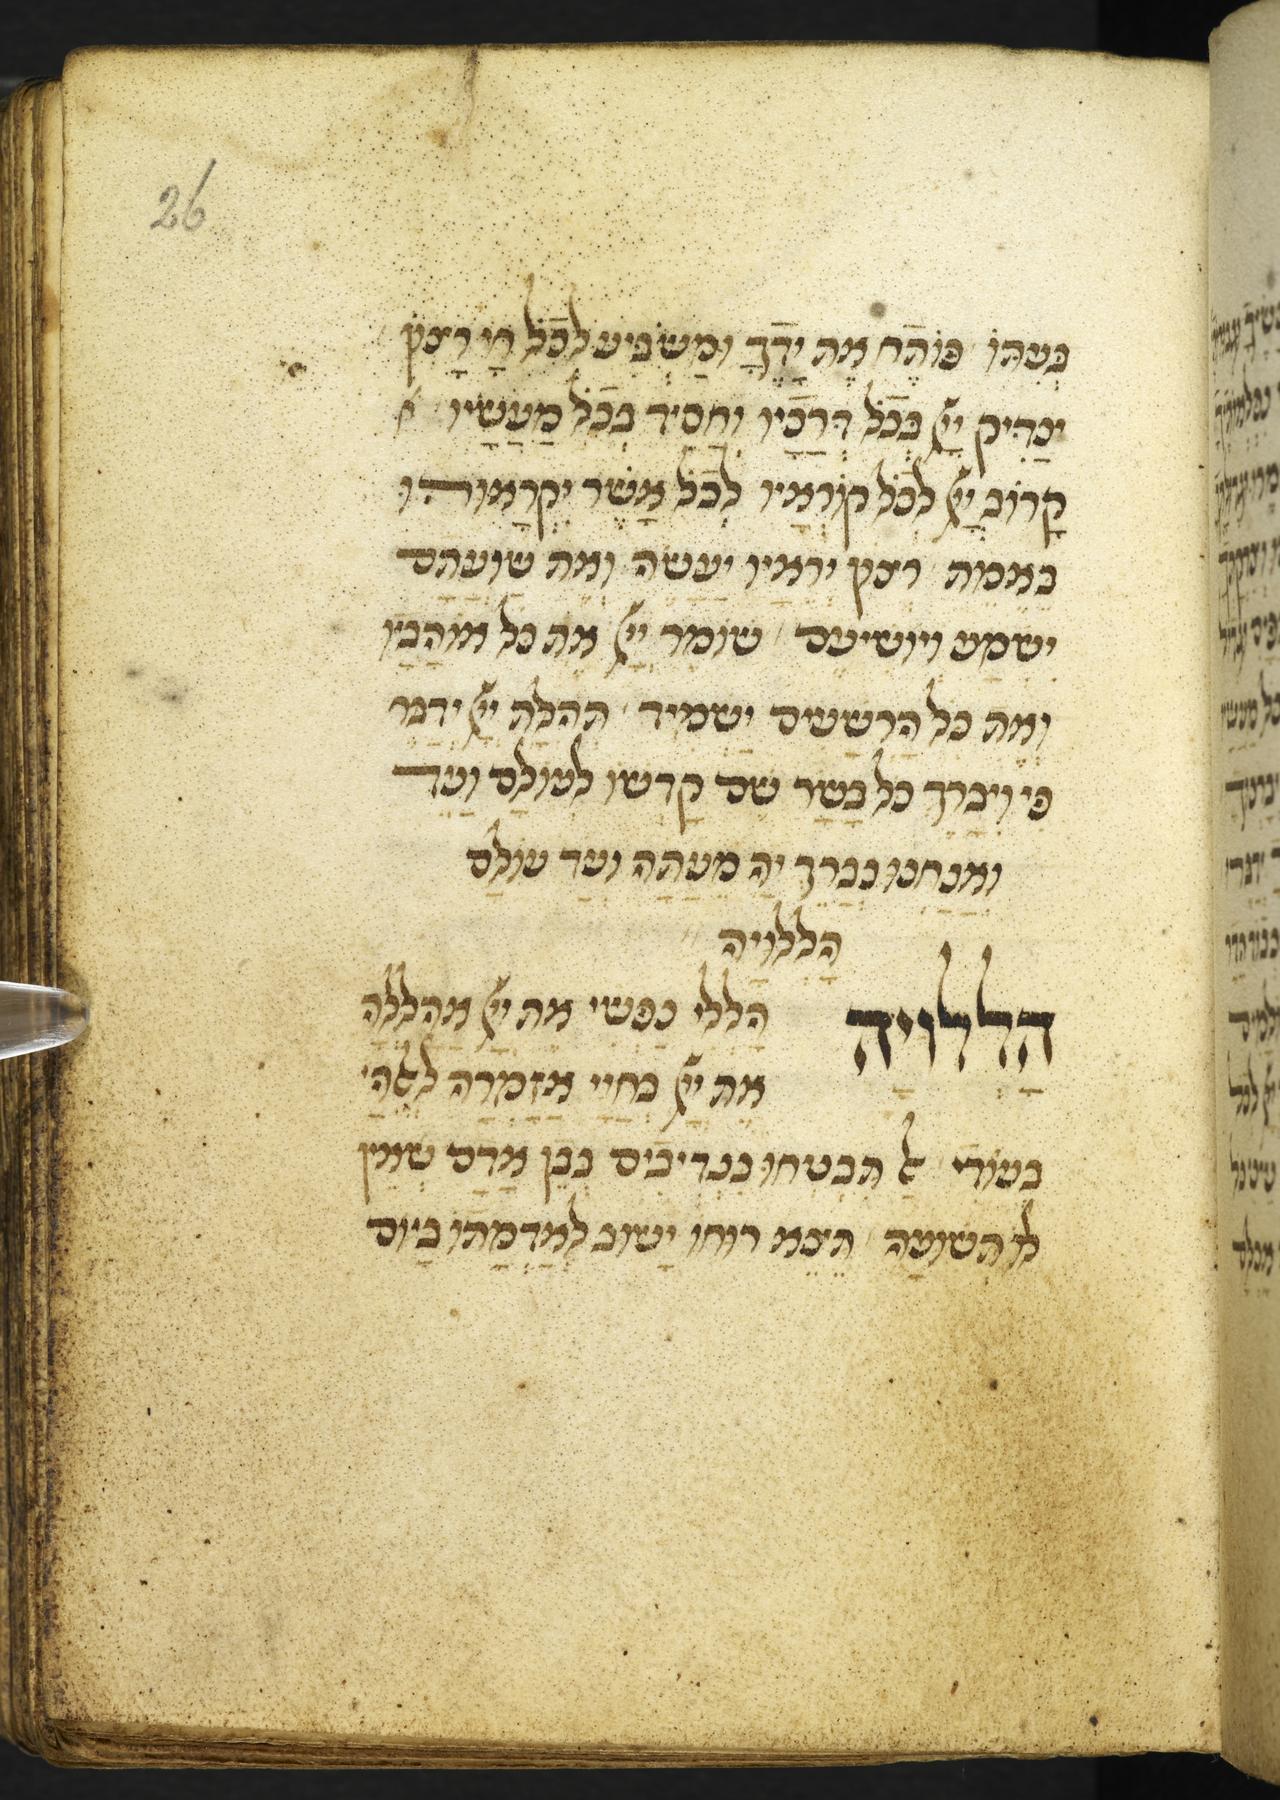 26
בְּעִתּוֹ פּוֹתֵחַ אֶת יָדֶךָ וּמַשְׂבִּיעַ לְכָל חַי רָצוֹן
צַדִּיק יְיָ בְּכָל דְּרָכָיו וְחָסִיד בְּכָל מַעֲשָׂיו
קָרוֹב יְיָ לְכָל קוֹרְאָיו לְכֹל אֲשֶׁר יִקְרָאוּהוּ
בֶאֱמֶת רצון יראיו יעשה ואת שועתם
ישמע ויושיעם שומר יְיָ את כל אוהביו
ואת כל הרשעים ישמיד תהלת יְיָ ידבר
פי ויברך כל בשר שם קדשו לעולם ועד
ואנחנו נברך יה מעתה ועד עולם
הללויה
הללויה הללי נפשי את יְיָ אהללה
את יְיָ בחיי אזמרה לאלהי
בעודי אל תבטחו בנדיבים בבן אדם שאין
לו תשועה תצא רוחו ישוב לאדמתו ביום